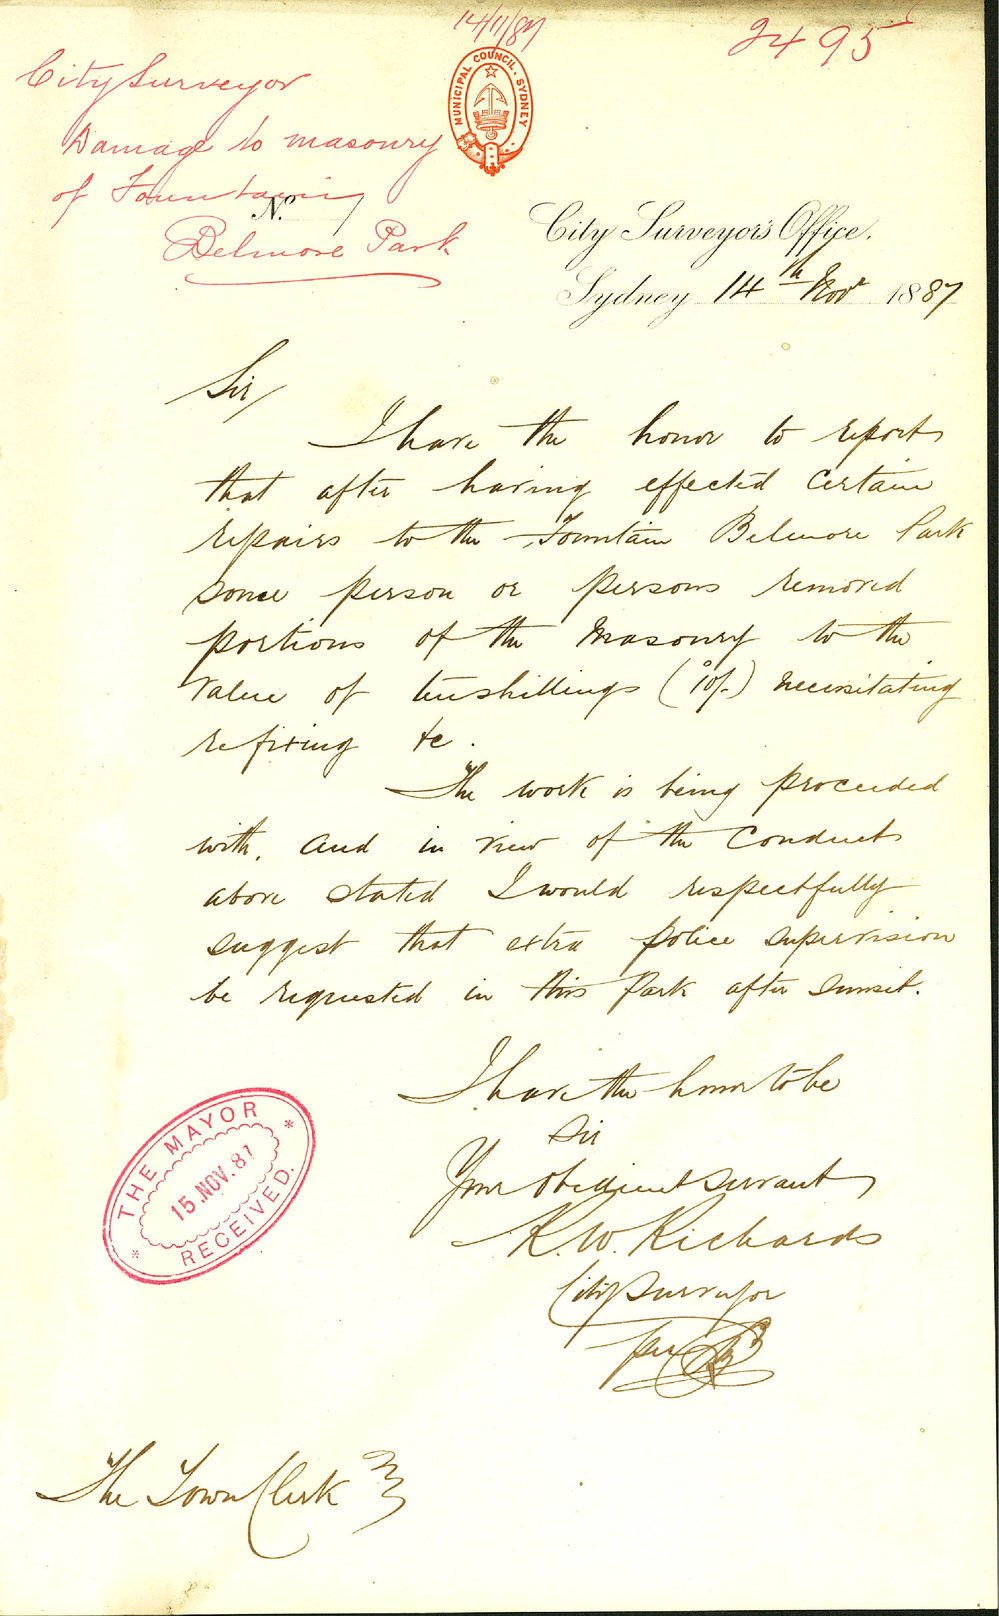 14/11/87
2495
City Surveyor
Damage to masonry
of Fountain
Belmore Park
MUNICIPAL COUNCIL. SYDNEY
No.
City Surveyor's Office.
Sydney 14th Novr 1887
Sir/
I have the honor to report
that after having effected certain
repairs to the Fountain Belmore Park
some person or persons removed
portions of the Masonry to the
value of tenshillings (10/-) necessitating
refixing &c.
The work is being proceeded
with, and in view of the conduct
above stated I would respectfully
suggest that extra police supervision
be requested in this Park after sunset.
I have the honor to be
Sir
Your obedient servant
R. W. Richards
City Surveyor
per
THE MAYOR
15.NOV.87
RECEIVED.
The Town Clerk